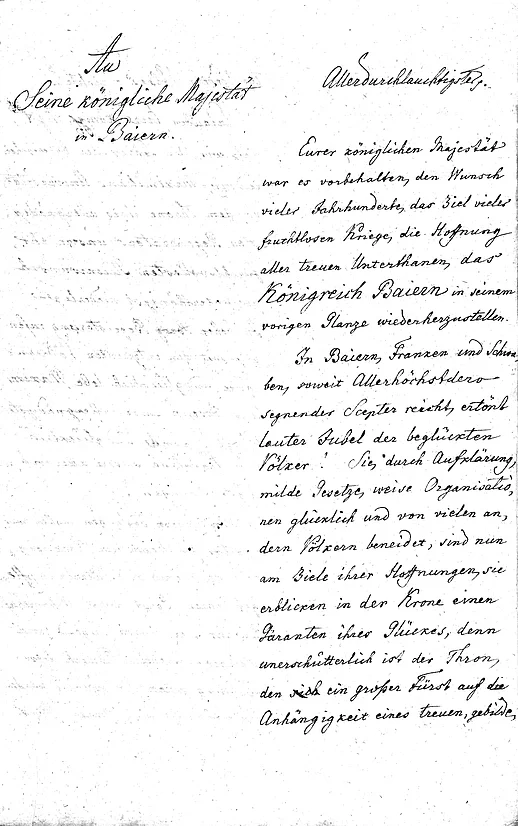 An
Seine königliche Majestät
in Baiern.
Allerdurchlauchtigster.
Eurer königlichen Majestät
war es vorbehalten, den Wunsch
vieler Jahrhunderte, das Ziel vieler
fruchtlosen Kriege, die Hoffnung
aller treuen Unterthanen, das
Königreich Baiern in seinem
vorigen Glanze wiederherzustellen.
In Baiern, Franken und Schwa,
ben, soweit Allerhöchstdero
segnender Scepter reicht, ertönt
lauter Jubel der beglückten
Völker! Sie, durch Aufklärung,
milde Gesetze, weise Organisatio,
nen glücklich und von vielen an,
dern Völkern beneidet, sind nun
am Ziele ihrer Hoffnungen, sie
erblicken in der Krone einen
Garanten ihres Glückes, denn
unerschütterlich ist der Thron,
den sich ein großer Fürst auf die
Anhängigkeit eines treuen, gebilde,